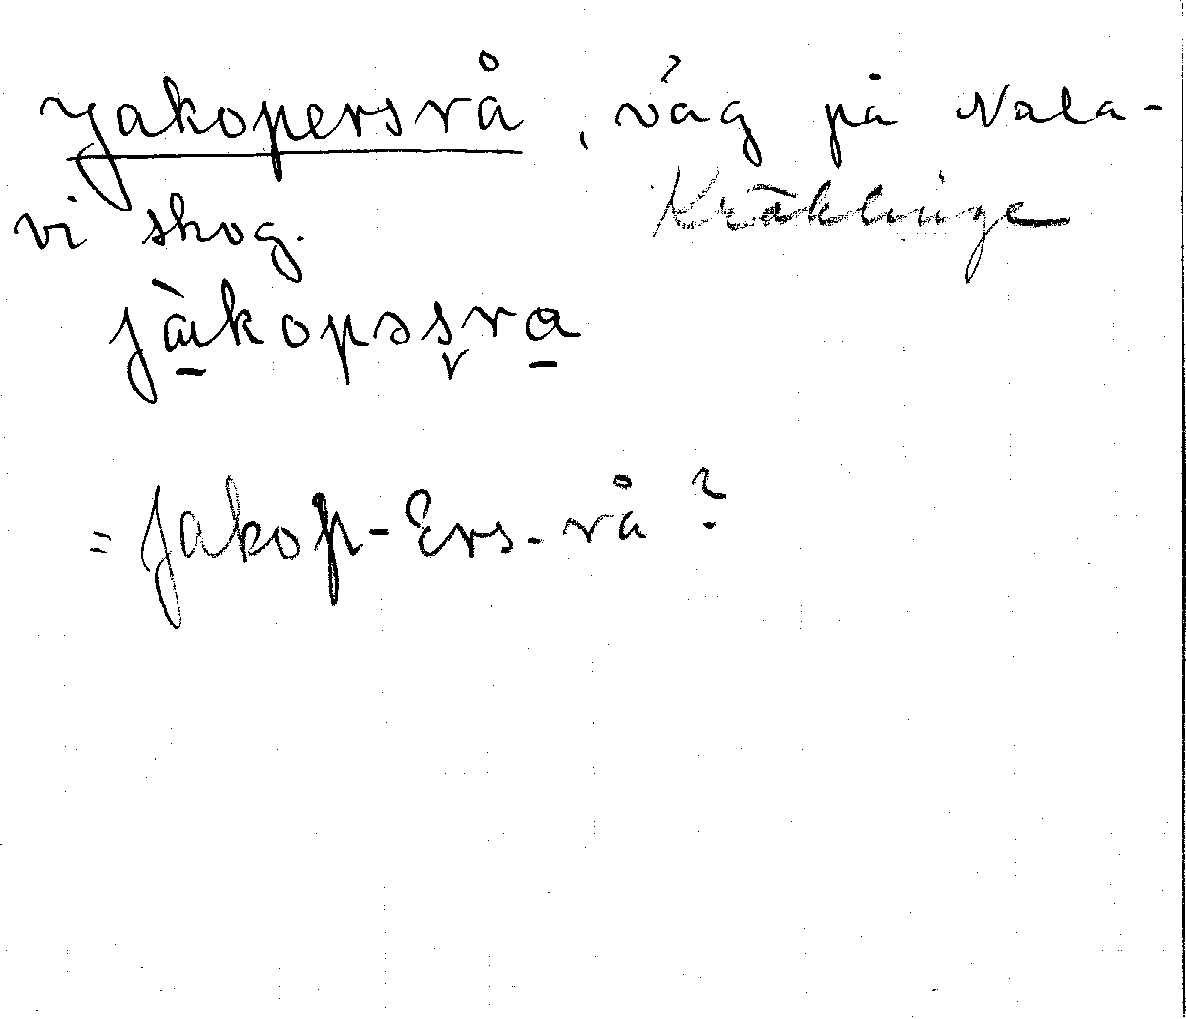 Jakopersrå, väg på Nala-
vi skog. Kräklinge
jàkopsşra
= Jakop-Ers-rå?